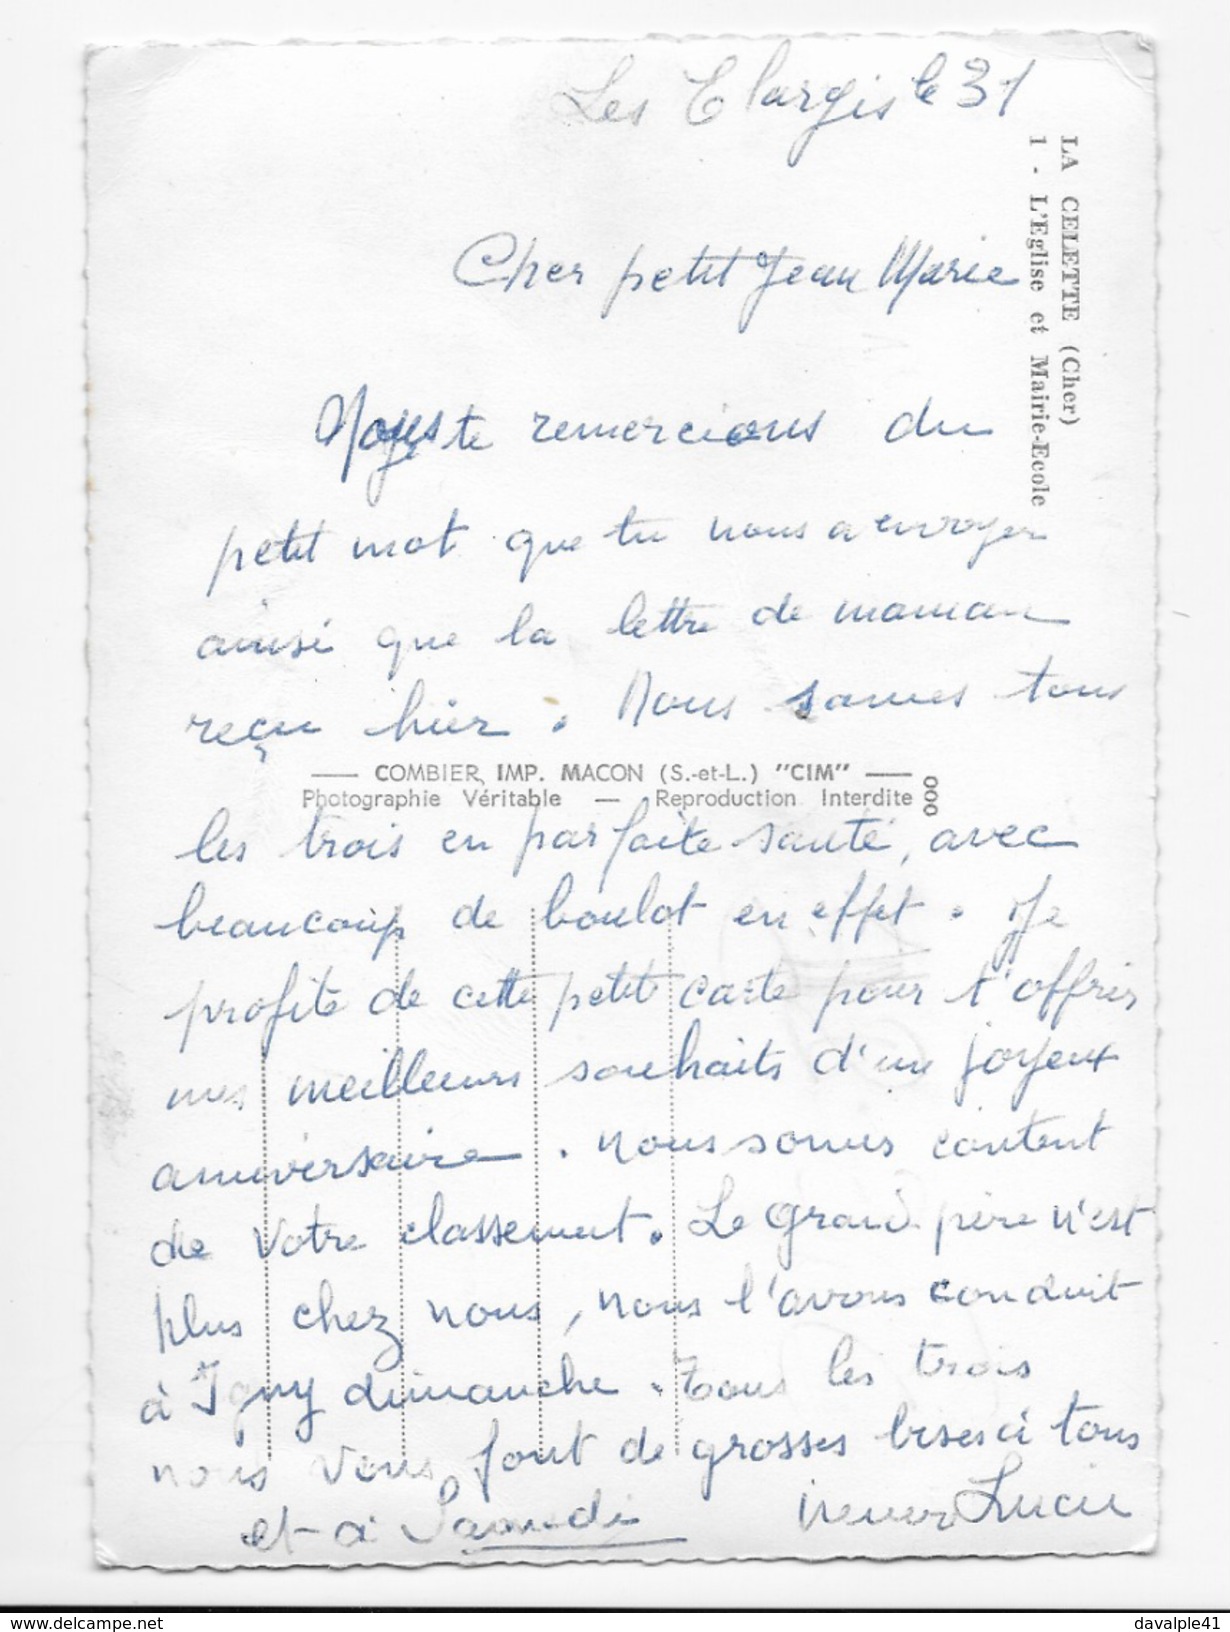 Les Clargis le 31
LA CELETTE (Cher)
1 - L'Eglise et Mairie-Ecole
Cher petit Jean Marie
Nous te remercions du
petit mot que tu nous a envoyer
ainsi que la lettre de maman
reçu hier. Nous somes tous
COMBIER IMP. MACON (S.-et-L.) "CIM"
Photographie Véritable — Reproduction Interdite
les trois en parfaite santé, avec
beaucoup de boulot en effet. Je
profite de cette petit carte pour t'offrir
mes meilleurs souhaits d'un joyeux
anniversaire. Nous somes content
de votre classement. Le grand père n'est
plus chez nous, nous l'avons conduit
à Igny dimanche. Tous les trois
nous vous font de grosses bises à tous
et à Samedi Lucie
davalple41